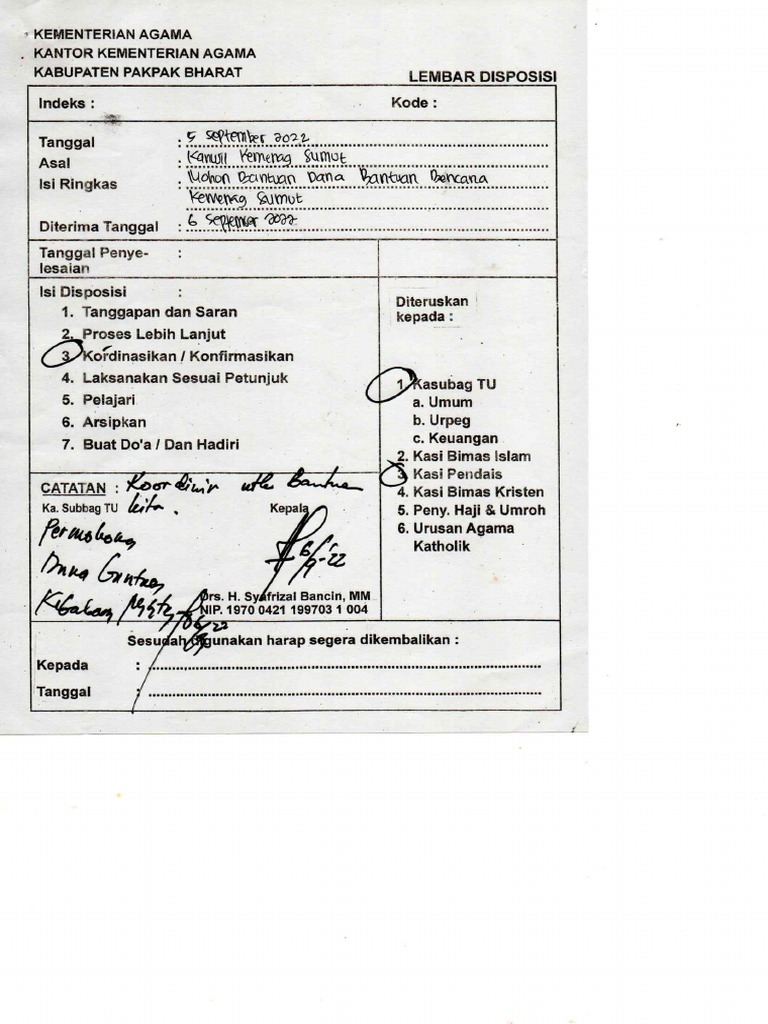 KEMENTERIAN AGAMA
KANTOR KEMENTERIAN AGAMA
KABUPATEN PAKPAK BHARAT
LEMBAR DISPOSISI
Indeks : Kode :
Tanggal : 5 September 2022
Asal : Kanwil Kemenag Sumut
Isi Ringkas : Mohon Bantuan Dana Bantuan Bencana
Kemenag Sumut
Diterima Tanggal : 6 September 2022
Tanggal Penye- :
lesaian
Isi Disposisi :
1. Tanggapan dan Saran
2. Proses Lebih Lanjut
3. Kordinasikan / Konfirmasikan
4. Laksanakan Sesuai Petunjuk
5. Pelajari
6. Arsipkan
7. Buat Do'a / Dan Hadiri
Diteruskan
kepada :
1. Kasubag TU
a. Umum
b. Urpeg
c. Keuangan
2. Kasi Bimas Islam
3. Kasi Pendais
4. Kasi Bimas Kristen
5. Peny. Haji & Umroh
6. Urusan Agama
Katholik
CATATAN : Koordinir utk Bantuan
Ka. Subbag TU kita. Kepala
Permohonan
Dana
6/9-'22
Drs. H. Syafrizal Bancin, MM
NIP. 1970 0421 199703 1 004
Sesudah digunakan harap segera dikembalikan :
Kepada :
Tanggal :